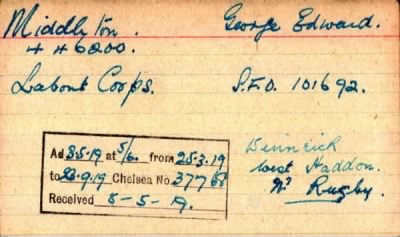 Middleton. George Edward.
446200.
Labour Corps. S.F.O. 101692.
Ad 8.5.19 at 5/6. from 25.3.19
to 23.9.19 Chelsea No. 37768
Received 8-5-19.
West Haddon.
Nr Rugby.